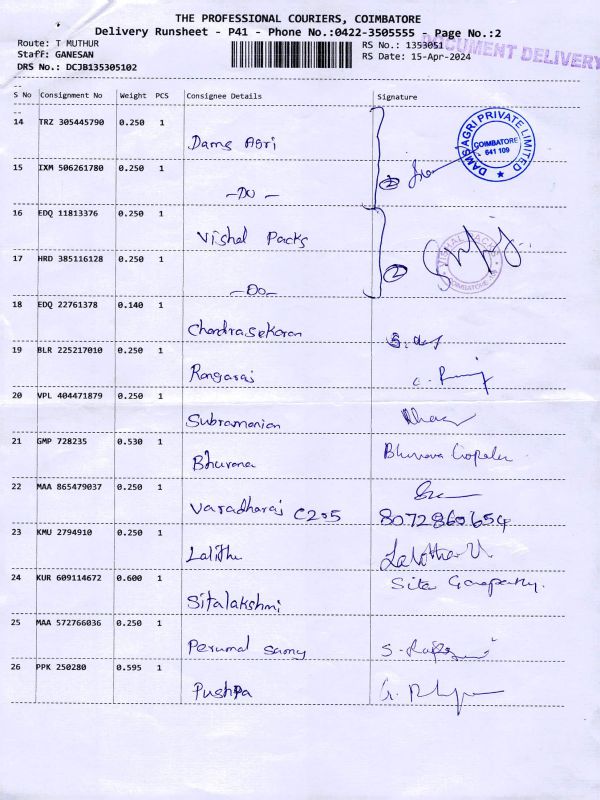 THE PROFESSIONAL COURIERS, COIMBATORE
Delivery Runsheet - P41 - Phone No.:0422-3505555 - Page No.:2
Route: T MUTHUR
RS No.: 1353051
DOCUMENT DELIVERY
Staff: GANESAN
RS Date: 15-Apr-2024
DRS No.: DCJB135305102
--
S No Consignment No Weight PCS Consignee Details Signature
--
14 TRZ 305445790 0.250 1
Dams Agri
DAMS AGRI PRIVATE LIMITED
COIMBATORE
641 109
15 IXM 506261780 0.250 1
2
-Do-
16 EDQ 11813376 0.250 1
Vishal Packs
VISHAL PACKS
COIMBATORE
17 HRD 385116128 0.250 1
2
-Do-
18 EDQ 22761378 0.140 1
Chandrasekaran
19 BLR 225217010 0.250 1
Rangaraj
20 VPL 404471879 0.250 1
Subramanian
21 GMP 728235 0.530 1
Bhuvana
22 MAA 865479037 0.250 1
Varadharaj C205 8072860654
23 KMU 2794910 0.250 1
Lalitha Lalitha V
24 KUR 609114672 0.600 1
Sita Ganapathy.
Sitalakshmi
25 MAA 572766036 0.250 1
Perumal Samy
26 PPK 250280 0.595 1
Pushpa